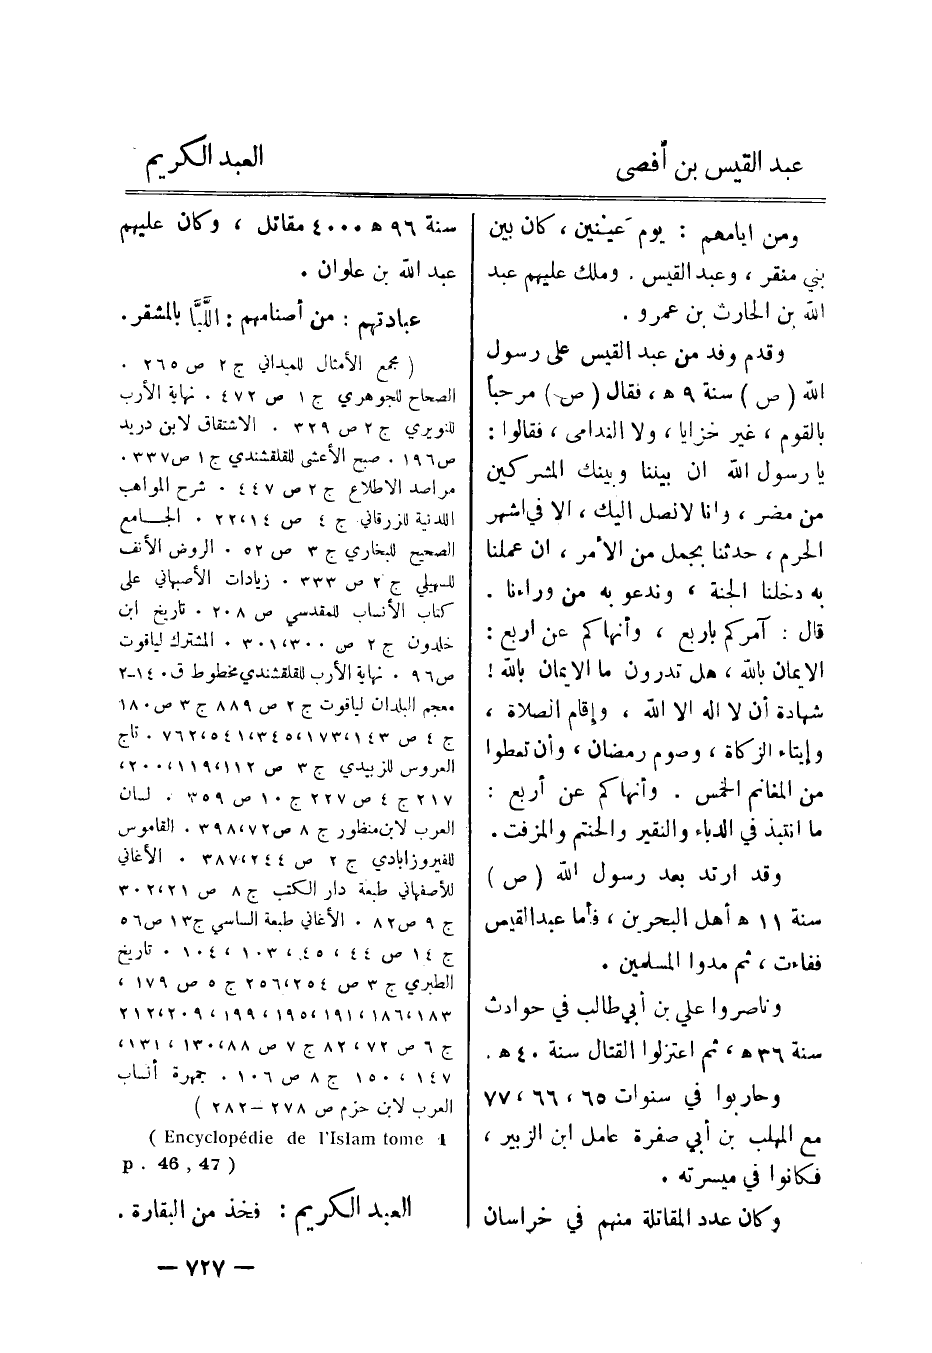 عبد القيس بن أفصى
العبد الكريم
ومن ايامهم : يوم عَيْنين ، كان بين
بني منقر ، وعبد القيس . وملك عليهم عبد
الله بن الحارث بن عمرو .
وقدم وفد من عبد القيس على رسول
الله ( ص ) سنة ٩ ه ، فقال ( ص ) مرحباً
بالقوم ، غير خزايا ، ولا الندامى ، فقالوا :
يا رسول الله ان بيننا وبينك المشركين
من مضر ، وانا لانصل اليك ، الا في اشهر
الحرم ، حدثنا بجمل من الأمر ، ان عملنا
به دخلنا الجنة ، وندعو به من وراءنا .
قال : آمركم باربع ، وأنهاكم عن اربع :
الايمان بالله ، هل تدرون ما الايمان بالله !
شهادة أن لا اله الا الله ، وإقام الصلاة ،
وإيتاء الزكاة ، وصوم رمضان ، وأن تعطوا
من المغانم الخمس . وأنهاكم عن أربع :
ما انتبذ في الدباء والنقير والحنتم والمزفت .
وقد ارتد بعد رسول الله ( ص )
سنة ١١ ه أهل البحرين ، فأما عبد القيس
ففاءت ، ثم مدوا المسلمين .
وناصروا علي بن أبي طالب في حوادث
سنة ٣٦ ه ، ثم اعتزلوا القتال سنة ٤٠ ه .
وحاربوا في سنوات ٦٥ ، ٦٦ ، ٧٧
مع المهلب بن أبي صفرة عامل ابن الزبير ،
فكانوا في ميسرته .
وكان عدد المقاتلة منهم في خراسان
سنة ٩٦ ه ٤٠٠٠ مقاتل ، وكان عليهم
عبد الله بن علوان .
عبادتهم : من أصنامهم : اللَّبَّا بالمشقر .
( مجمع الأمثال للميداني ج ٢ ص ٢٦٥ .
الصحاح للجوهري ج ١ ص ٤٧٢ . نهاية الأرب
للنويري ج ٢ ص ٣٢٩ . الاشتقاق لابن دريد
ص ١٩٦ . صبح الأعشى للقلقشندي ج ١ ص ٣٣٧ .
مراصد الاطلاع ج ٢ ص ٤٤٧ . شرح المواهب
اللدنية للزرقاني ج ٤ ص ٢٢،١٤ . الجامع
الصحيح للبخاري ج ٣ ص ٥٢ . الروض الأنف
للسهيلي ج ٢ ص ٣٣٣ . زيادات الأصبهاني على
كتاب الأنساب للمقدسي ص ٢٠٨ . تاريخ ابن
خلدون ج ٢ ص ٣٠١،٣٠٠ . المشترك لياقوت
ص ٩٦ . نهاية الأرب للقلقشندي مخطوط ق ١٤٠-٢
معجم البلدان لياقوت ج ٢ ص ٨٨٩ ج ٣ ص ١٨٠
ج ٤ ص ١٤٣،١٧٣،٣٤٥،٥٤١،٧٦٢ . تاج
العروس للزبيدي ج ٣ ص ١١٢،١١٩،٢٠٠،
٢١٧ ج ٤ ص ٢٢٧ ج ١٠ ص ٣٥٩ . لسان
العرب لابن منظور ج ٨ ص ٣٩٨،٧٢ . القاموس
للفيروزابادي ج ٢ ص ٣٨٧،٢٤٤ . الأغاني
للأصفهاني طبعة دار الكتب ج ٨ ص ٣٠٢،٢١
ج ٩ ص ٨٢ . الأغاني طبعة الساسي ج ١٣ ص ٥٦
ج ١٤ ص ٤٤ ، ٤٥ ، ١٠٣ ، ١٠٤ . تاريخ
الطبري ج ٣ ص ٢٥٤،٢٥٦ ج ٥ ص ١٧٩ ،
١٨٣،١٨٦،١٩١،١٩٥،١٩٩ ،٢١٢،٢٠٩
ج ٦ ص ٧٢ ،٨٢ ج ٧ ص ٨٨،١٣٠ ،١٣١،
١٤٧ ، ١٥٠ ج ٨ ص ١٠٦ . جمهرة أنساب
العرب لابن حزم ص ٢٧٨ – ٢٨٢ )
( Encyclopédie de l'Islam tome 1
p . 46 , 47 )
العبد الكريم : فخذ من البقارة .
— ٧٢٧ —